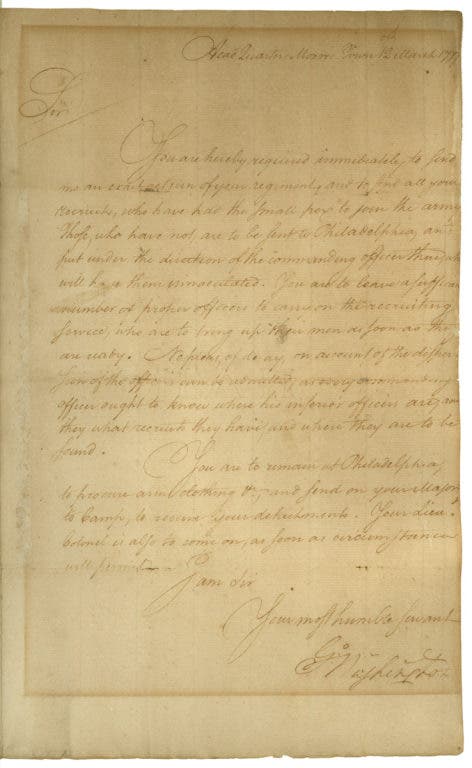 Head Quarters Morris Town 12th March 1777
Sir
You are hereby required immediately to send
me an exact return of your regiment, and to send all your
recruits, who have had the small pox to join the army
Those, who have not, are to be sent to Philadelphia, and
put under the direction of the commanding officer there, who
will have them innoculated. You are to leave a sufficient
number of proper officers to carry on the recruiting
service, who are to bring up their men as soon as they
are ready. No pleas, of delay, on account of the disper-
sion of the officers can be admitted, as every commanding
officer ought to know where his inferior officers are, and
they what recruits they have, and where they are to be
found.
You are to remain at Philadelphia,
to procure arms, clothing &c, and send on your Major
to Camp, to receive your detachments. Your Lieut
Colonel is also to come on, as soon as circumstances
will permit
I am Sir
Your most humble Servant
Go Washington